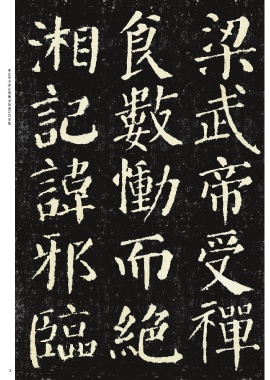 梁武帝受禪
食數慟而絕
湘記諱邪臨